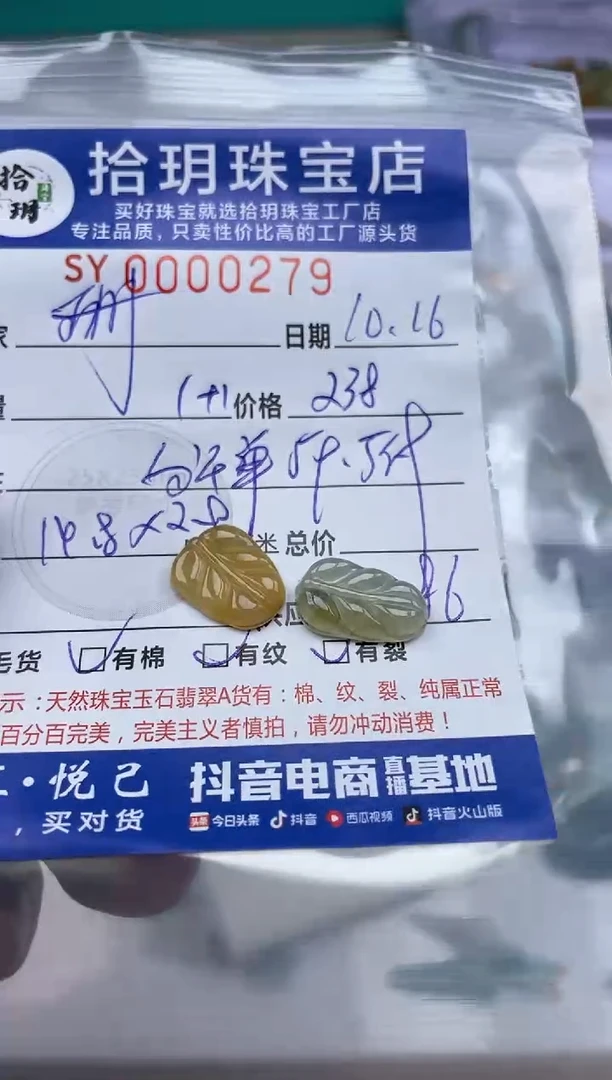 拾玥珠宝店
拾玥
买好珠宝就选拾玥珠宝工厂店
专注品质，只卖性价比高的工厂源头货
SY 0000279
日期 10.16
1+1 价格 238
米 总价
毛货 有棉 有纹 有裂
示：天然珠宝玉石翡翠A货有：棉、纹、裂、纯属正常
百分百完美，完美主义者慎拍，请勿冲动消费！
·悦己 抖音电商直播基地
，买对货 头条 今日头条 抖音 西瓜视频 抖音火山版